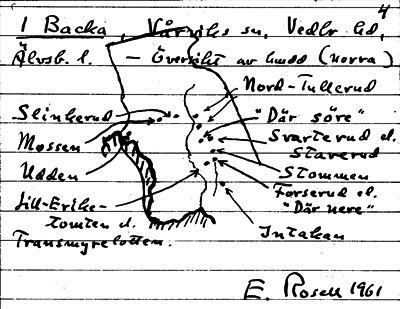 4
1 Backa, Vårviks sn, Vedbo hd,
Älvsb. l. — Översikt av hmdd (norra)
Nord-Tullerud
Slinkerud
"Där söre"
Mossen
Svarterud el.
Staverud
Udden
Stommen
Forserud el.
"Där nere"
Lill-Eriks-
tomten el.
Transmyrelotten.
Intakan
E. Rosell 1961